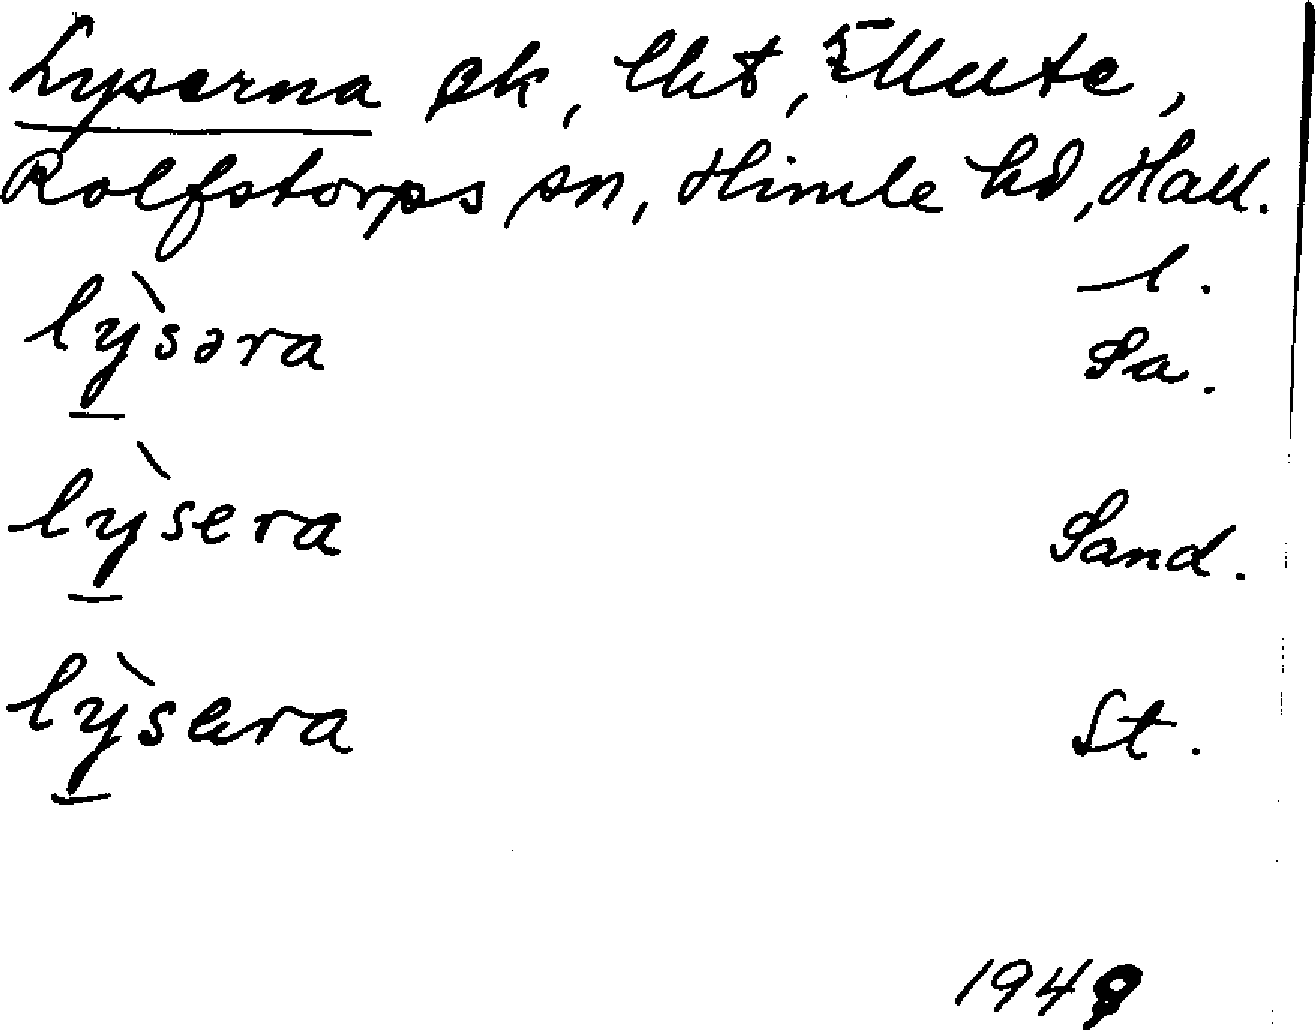 Lyserna ek, lht, Ellute,
Rolfstorps sn, Himle hd, Hall.
l.
lỳsəra Sa.
lỳsera Sand.
lỳsara St.
1949